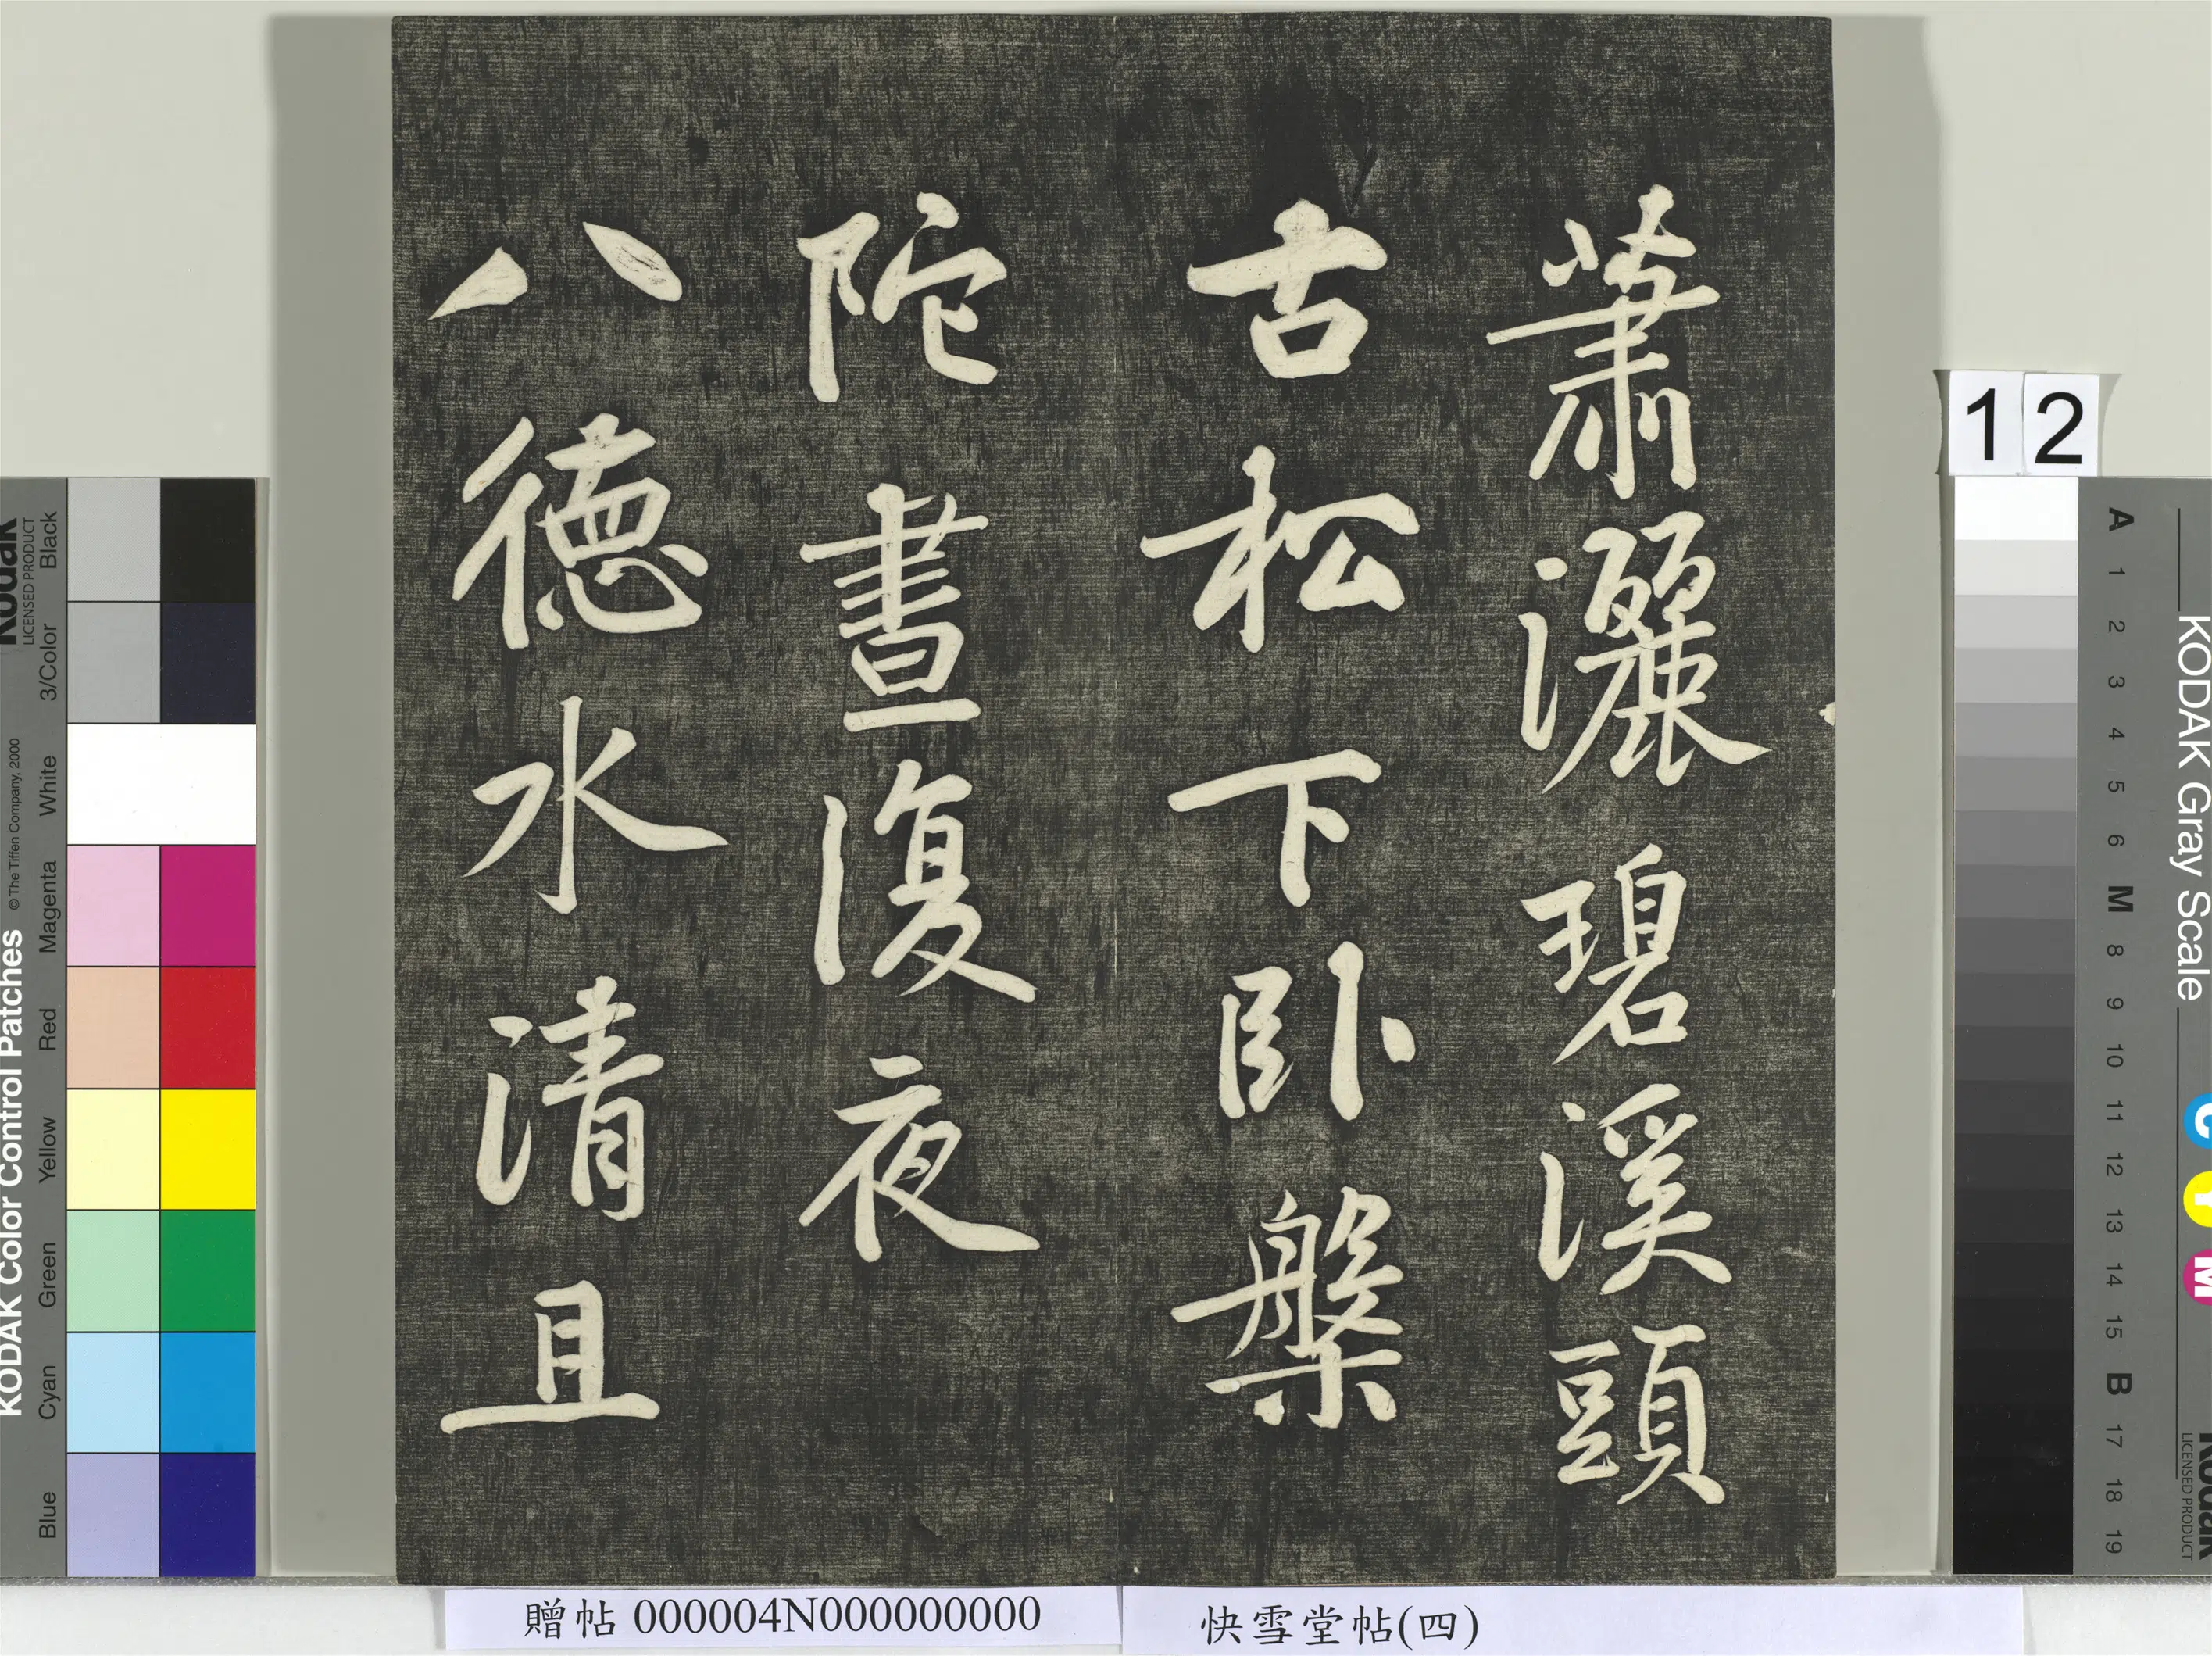 蕭灑碧溪頭
古松下卧槃
陀晝復夜
八德水清且
12
贈帖 000004N000000000
快雪堂帖(四)
KODAK Color Control Patches
© The Tiffen Company, 2000
Kodak
LICENSED PRODUCT
Blue Cyan Green Yellow Red Magenta White 3/Color Black
KODAK Gray Scale
A 1 2 3 4 5 6 M 8 9 10 11 12 13 14 15 B 17 18 19
C Y M
Kodak
LICENSED PRODUCT